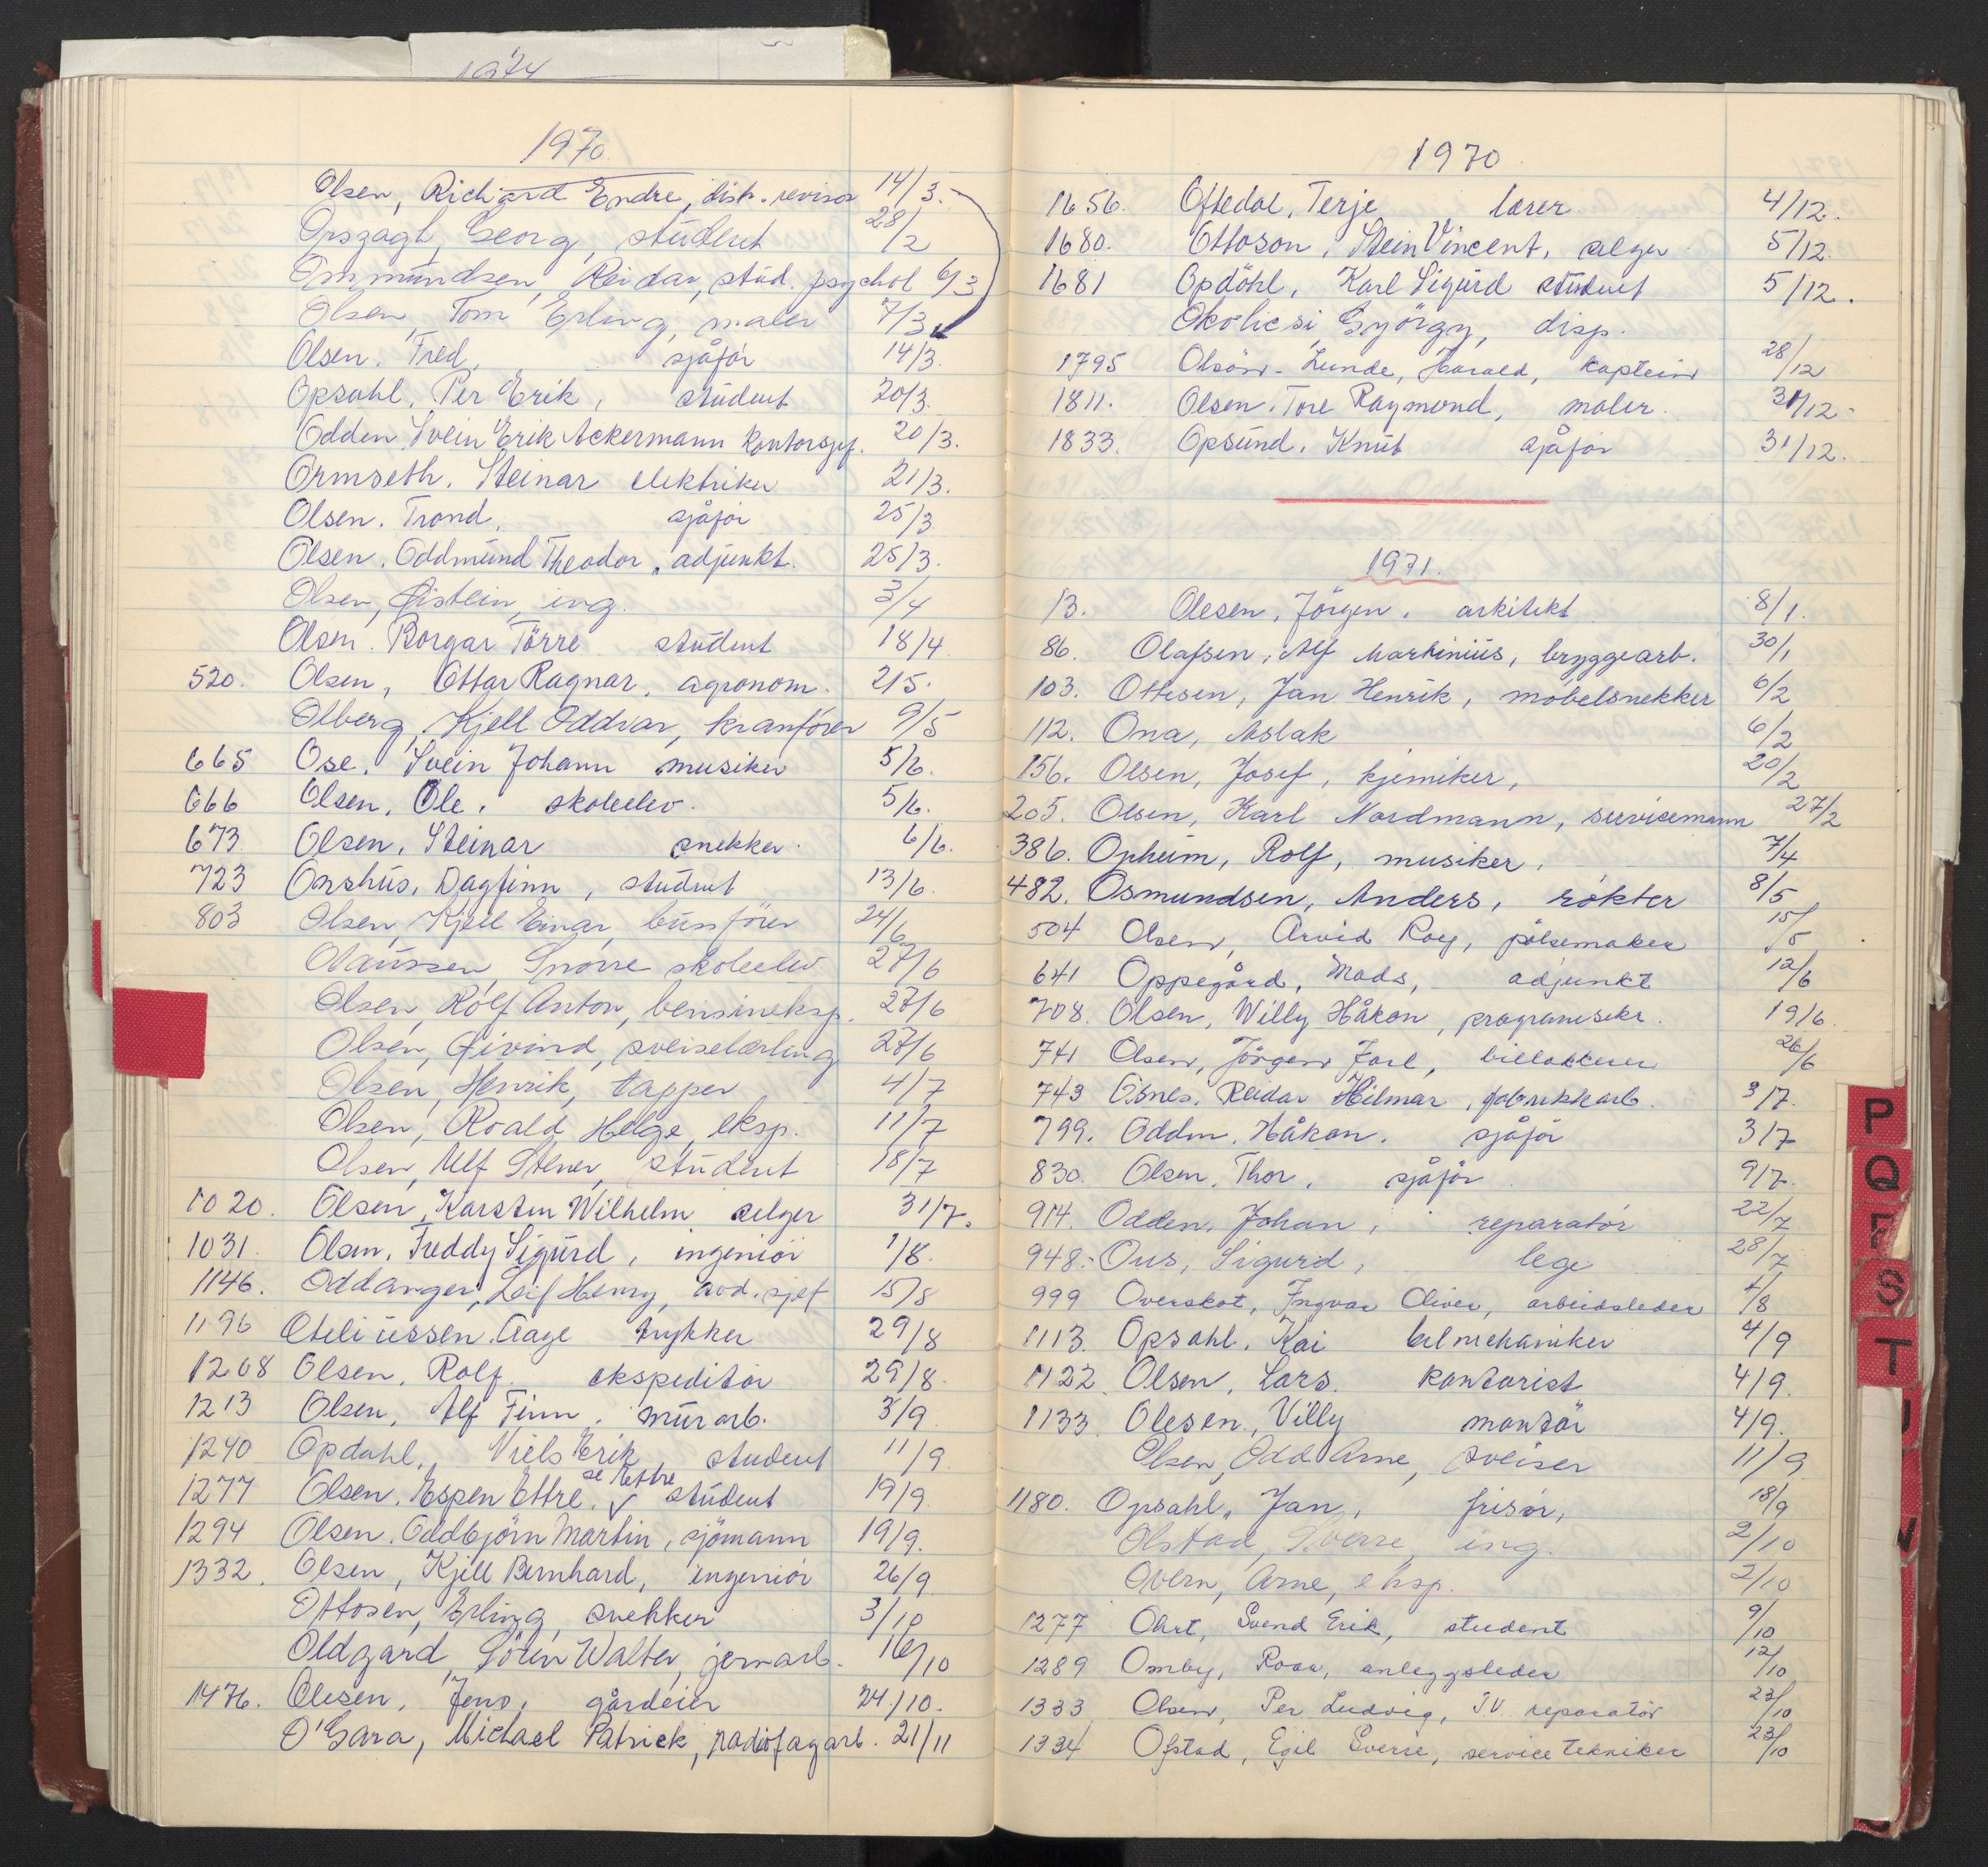 1974
1970
Olsen, Richard Endre, distr. revisor 14/3.
Orszagh, Georg, student 28/2
Ommundsen, Reidar, stud. psychol 6/3
Olsen, Tom Erling, maler 7/3
Olsen. Fred, sjåför 14/3.
Opsahl. Per Erik, student 20/3.
Odden Svein Erik Ackermann kontorsjef. 20/3.
Ormseth. Steinar elektriker 21/3.
Olsen. Trond, sjåför 25/3
Olsen. Oddmund Theodor, adjunkt. 25/3.
Olsen, Øistein, ing. 3/4
Olsen. Borgar Törre student 18/4
520. Olsen, Ottar Ragnar, agronom. 2/5.
Olberg, Kjell Oddvar, kranförer 9/5
665 Ose. Svein Johann musiker 5/6.
666 Olsen. Ole. skoleelev. 5/6.
673 Olsen. Steinar snekker. 6/6.
723 Onshus. Dagfinn, student 13/6.
803 Olsen, Kjell Einar, bussförer 24/6
Olaussen, Snorre skoleelev 27/6
Olsen, Rolf Anton, bensineksp. 27/6
Olsen, Øivind, sveiselærling 27/6
Olsen, Henrik, tapper 4/7
Olsen, Roald Helge, eksp. 11/7
Olsen, Ulf Stener, student 18/7
1020. Olsen, Karsten Wilhelm selger 31/7.
1031. Olsen. Freddy Sigurd, ingeniör 1/8.
1146. Oddanger, Leif Henry, avd. sjef 15/8
1196 Oteliussen. Aage trykker 29/8
1208 Olsen. Rolf. ekspeditör 29/8.
1213 Olsen. Alf Finn. murarb. 3/9
1240 Opdahl. Niels Erik, student 11/9.
se Ettre
1277 Olsen. Espen Ettre. ✓ student 19/9.
1294 Olsen. Oddbjörn Martin, sjömann 19/9.
1332. Olsen, Kjell Bernhard, ingeniör 26/9
Ottosen, Erling, snekker 3/10
Oldgard, Sören Walter, jernarb. 16/10
1476. Olesen, Jens, gårdeier 24/10.
O'Gara, Michael Patrick, radiofagarb. 21/11
1970
1656. Oftedal, Terje lærer 4/12.
1680. Ottoson, Stein Vincent, selger 5/12.
1681 Opdöhl, Karl Sigurd student 5/12.
Okolicsi, György, disp.
1795 Olsön-Lunde, Harald, kaptein 28/12
1811. Olsen. Tore Raymond, maler. 31/12.
1833. Opsund. Knut sjåför 31/12.
1971.
13. Olesen, Jörgen. arkitekt 8/1.
86. Olafsen, Alf Martinius, bryggearb. 30/1
103. Ottesen, Jan Henrik, möbelsnekker 6/2
112. Ona, Aslak 6/2
156. Olsen, Josef, kjemiker, 20/2
205. Olsen, Karl Nordmann, servicemann 27/2
386. Opheim, Rolf, musiker, 7/4
482. Osmundsen, Anders, rökter 8/5
504 Olsen, Arvid Roy, pölsemaker 15/5
641 Oppegård, Mads, adjunkt 12/6
708. Olsen, Willy Håkon, programsekr. 19/6.
741 Olsen, Jörgen Jarl, billakkerer 26/6
743 Osnes. Reidar Hilmar, fabrikkarb. 3/7.
799. Odden. Håkon. sjåför 3/7
830. Olsen. Thor. sjåför 9/7.
914. Odden. Johan, reparatör 22/7
948. Ous, Sigurd, lege 28/7
999 Overskot, Ingvar Oliver, arbeidsleder 7/8
1113. Opsahl. Kai bilmekaniker 4/9
1122. Olsen, Lars. kontorist 4/9.
1133 Olesen, Villy montör 4/9.
Olsen, Odd Arne, sveiser 11/9
1180. Opsahl, Jan, frisör, 18/9
Olstad, Sverre, ing. 2/10
Overn, Arne, eksp. 2/10
1277 Ohrt, Svend Erik, student 9/10
1289 Omby, Roar, anleggsleder 12/10
1333 Olsen, Per Ludvig, TV reparatör 23/10
1334 Ofstad, Egil Sverre, service tekniker 23/10
P
Q
R
S
T
U
V